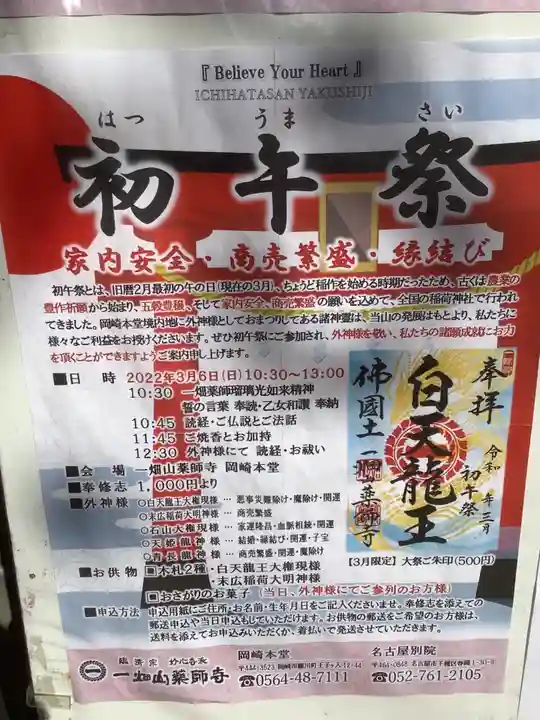 『 Believe Your Heart 』
ICHIHATASAN YAKUSHIJI
はつ うま さい
初午祭
家内安全・商売繁盛・縁結び
初午祭とは、旧暦2月最初の午の日(現在の3月)、ちょうど稲作を始める時期だったため、古くは農業の
豊作祈願から始まり、五穀豊穣、そして家内安全、商売繁盛の願いを込めて、全国の稲荷神社で行われ
てきました。岡崎本堂境内地に外神様としておまつりしてある諸神霊は、当山の発展はもとより、私たちに
様々なご利益をお授けくださいます。ぜひ初午祭にご参加され、外神様を敬い、私たちの諸願成就にお力
を頂くことができますようご案内申し上げます。
■日 時 2022年3月6日(日)10:30~13:00
10:30 一畑薬師瑠璃光如来精神
誓の言葉 奉読・乙女和讃 奉納
10:45 読経・ご仏説とご法話
11:45 ご焼香とお加持
12:30 外神様にて 読経・お祓い
■会 場 一畑山薬師寺 岡崎本堂
■奉修志 1,000円より
■外神様 ○白天龍王大権現様 … 悪事災難除け・魔除け・開運
○末広稲荷大明神様 … 商売繁盛
○石山大権現様 … 家運隆昌・血脈相続・開運
○天姫龍神様 … 結婚・縁結び・開運・子宝
長龍神様 … 商売繁盛・開運・魔除け
■お供物 □木札2種・白天龍王大権現様
・末広稲荷大明神様
□おさがりのお菓子(当日、外神様にてご参列のお方様)
■申込方法 申込用紙にご住所・お名前・生年月日をご記入くださいませ。奉修志を添えての
郵送申込や当日申込もしていただけます。お供物の郵送をご希望のお方様は、
送料を添えてお申込みいただくか、着払いで発送させていただきます。
奉拝
令和 年三月
初午祭
白天龍王
佛國土
【3月限定】大祭ご朱印(500円)
臨済宗 妙心寺派
一畑山薬師寺
岡崎本堂
☎0564-48-7111
名古屋別院
☎052-761-2105